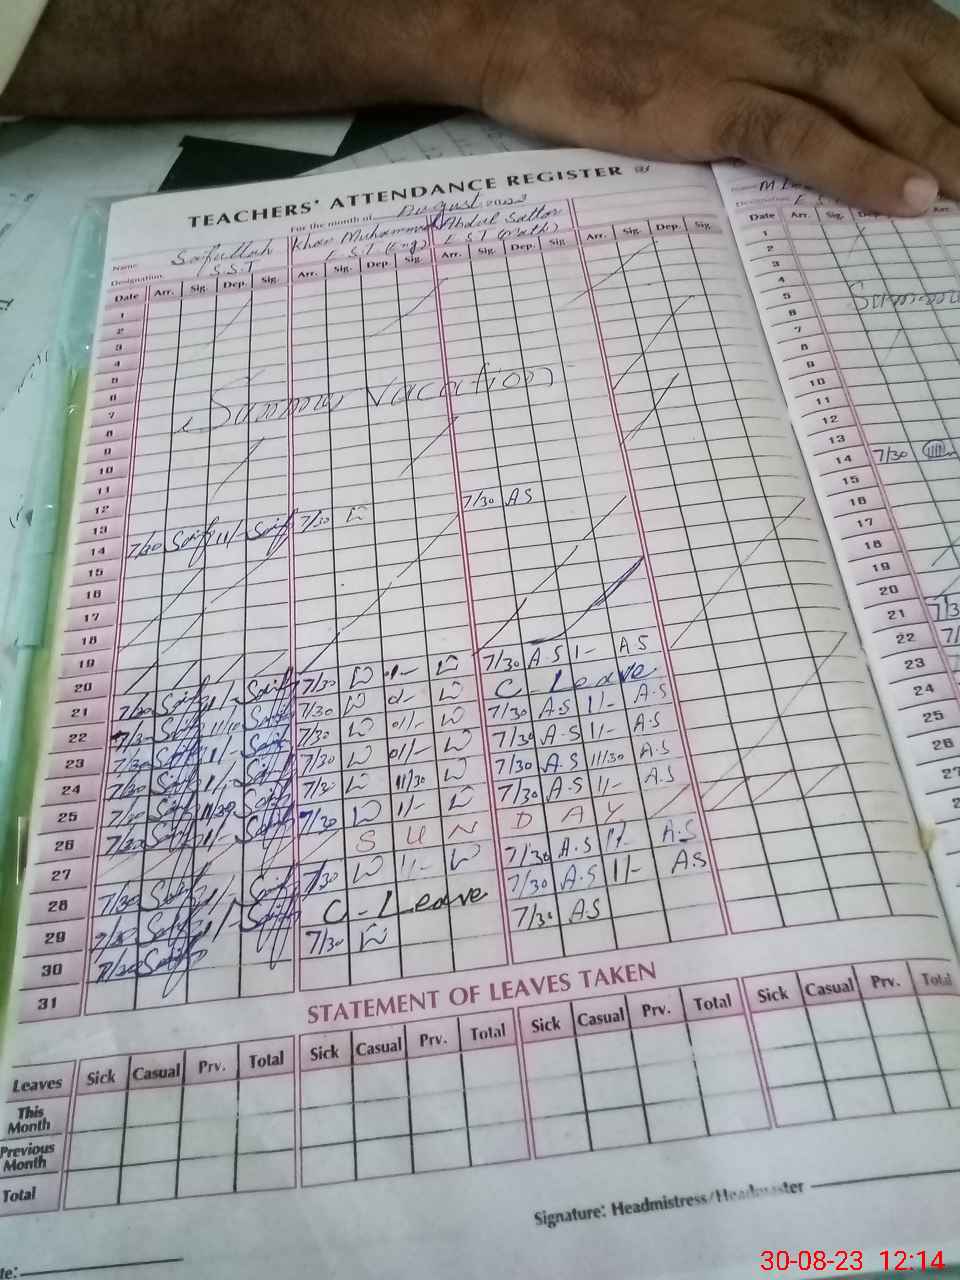 TEACHERS' ATTENDANCE REGISTER
For the month of August
Name Saifullah Khan Muhammad Abdul Sattar
Designation S.S.T E.S.T (Eng) E.S.T (Math)
Date Arr. Sig. Dep. Sig. Arr. Sig. Dep. Sig. Arr. Sig. Dep. Sig. Arr. Sig. Dep. Sig.
1
2
3
4
5
6
7
Summer Vacation
8
9
10
11
12
13
14 7/30 Saif 11/- Saif 7/30 7/30 AS
15
16
17
18
19
20
21 7/30 Saif 11/- Saif 7/30 7/30 A.S 11- A.S
22 7/30 Saif 11/10 Saif 7/30 C-Leave
23 7/30 Saif 11/- Saif 7/30 7/30 A.S 11- A.S
24 7/30 Saif 11/- Saif 7/30 7/30 A.S 11- A.S
25 7/30 Saif 11/30 Saif 7/30 11/30 7/30 A.S 11/30 A.S
26 7/30 Saif 11/- Saif 7/30 11/- 7/30 A.S 11- A.S
27 SUNDAY
28 7/30 Saif 11/- Saif 7/30 11- 7/30 A.S 11- A.S
29 7/30 Saif 11/- Saif C-Leave 7/30 A.S 11- A.S
30 7/30 Saif 7/30 7/30 AS
31
STATEMENT OF LEAVES TAKEN
Leaves Sick Casual Prv. Total Sick Casual Prv. Total Sick Casual Prv. Total Sick Casual Prv. Total
This Month
Previous Month
Total
Signature: Headmistress/Headmaster
Date Arr. Sig.
1
2
3
4
5
6
7
8
9
10
11
12
13
14 7/30
15
16
17
18
19
20
21
22
23
24
25
26
30-08-23 12:14